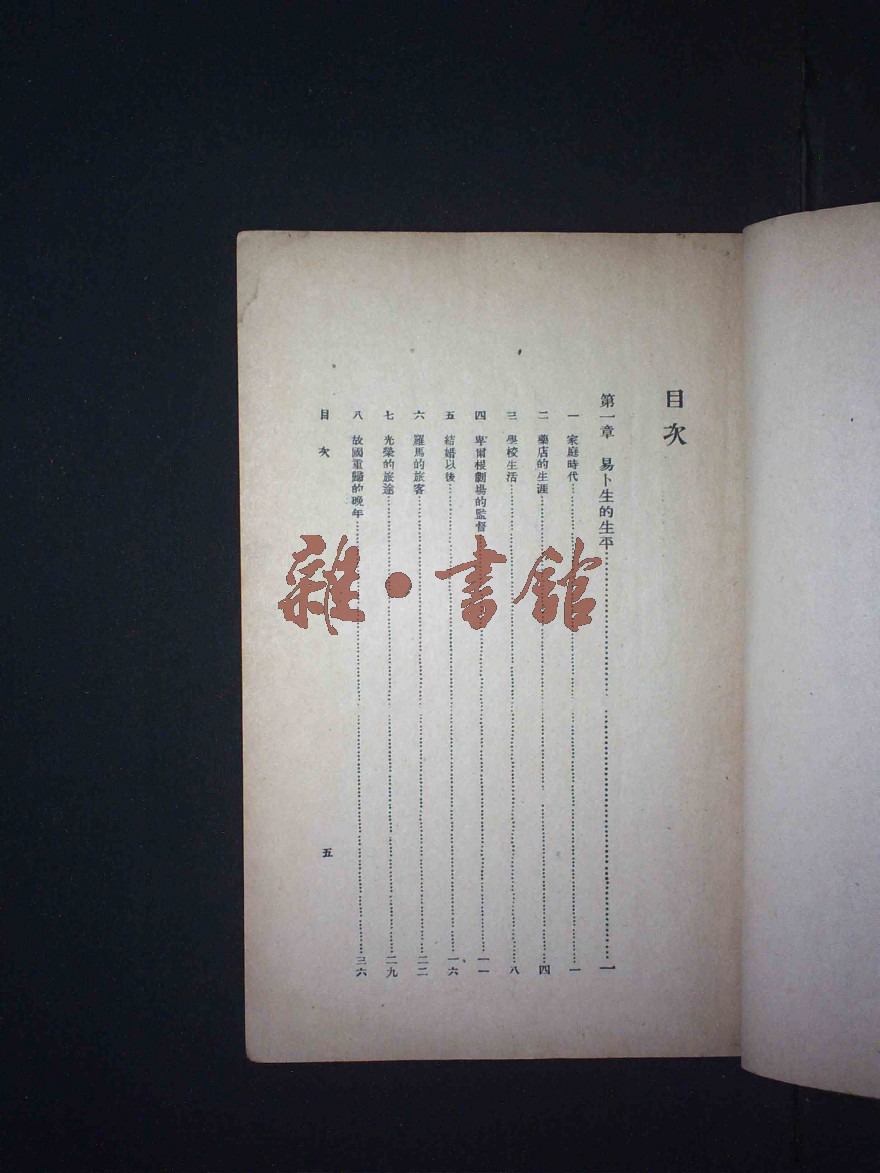 目次
第一章 易卜生的生平……一
一 家庭時代……一
二 藥店的生涯……四
三 學校生活……八
四 卑爾根劇場的監督……一一
五 結婚以後……一六
六 羅馬的旅客……二二
七 光榮的旅途……二九
八 故國重歸的晚年……三六
目次
五
雜·書館